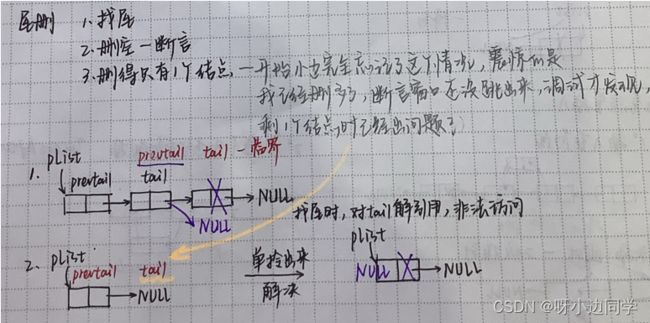 尾删 1. 找尾
2. 删空 — 断言
3. 删得只有1个结点, 一开始小边完全忘记了这个情况, 震惊的是
我已经删多了, 断言窗口还没跳出来, 调试才发现,
剩1个结点时已经出问题了
plist prevtail tail - 临界
1. prevtail tail
NULL
NULL
找尾时, 对tail解引用, 非法访问
2. plist
prevtail tail
NULL
单拎出来
解决
plist
NULL NULL
CSDN @呀小边同学